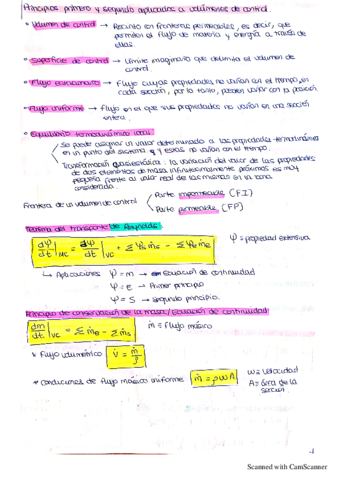 Principios primero y segundo aplicados a volúmenes de control.
* Volumen de control → Recinto con fronteras permeables, es decir, que
permiten el flujo de materia y energía a través de
ellas.
* Superficie de control → Límite imaginario que delimita el volumen de
control.
* Flujo estacionario → Flujo cuyas propiedades no varían con el tiempo, en
cada sección, por lo tanto, pueden variar con la posición
* Flujo uniforme → en el que sus propiedades no varían en una sección
entera.
* Equilibrio termodinámico local
Se puede asignar un valor determinado a las propiedades termodinámicas
en un punto del sistema y estas no varían con el tiempo.
Transformación cuasiestática: la variación del valor de las propiedades
de dos elementos de masa infinitesimalmente próximos es muy
pequeña frente al valor real de las mismas en la zona
considerada.
Frontera de un volumen de control
Parte impermeable (FI)
Parte permeable (FP)
Teorema del transporte de Reynolds
dψ/dt|VC = dψ/dt| + Σ ψe ṁe - Σ ψs ṁs
ψ = propiedad extensiva
↳ Aplicaciones ψ = m → Ecuación de continuidad
ψ = E → Primer principio
ψ = S → segundo principio.
Principio de conservación de la masa / Ecuación de continuidad
dm/dt|VC = Σ ṁe - Σ ṁs
ṁ = Flujo másico
* Flujo volumétrico V̇ = ṁ/ρ
* Condiciones de flujo másico uniforme ṁ = ρwA
w = velocidad
A = área de la
sección
-1
Scanned with CamScanner